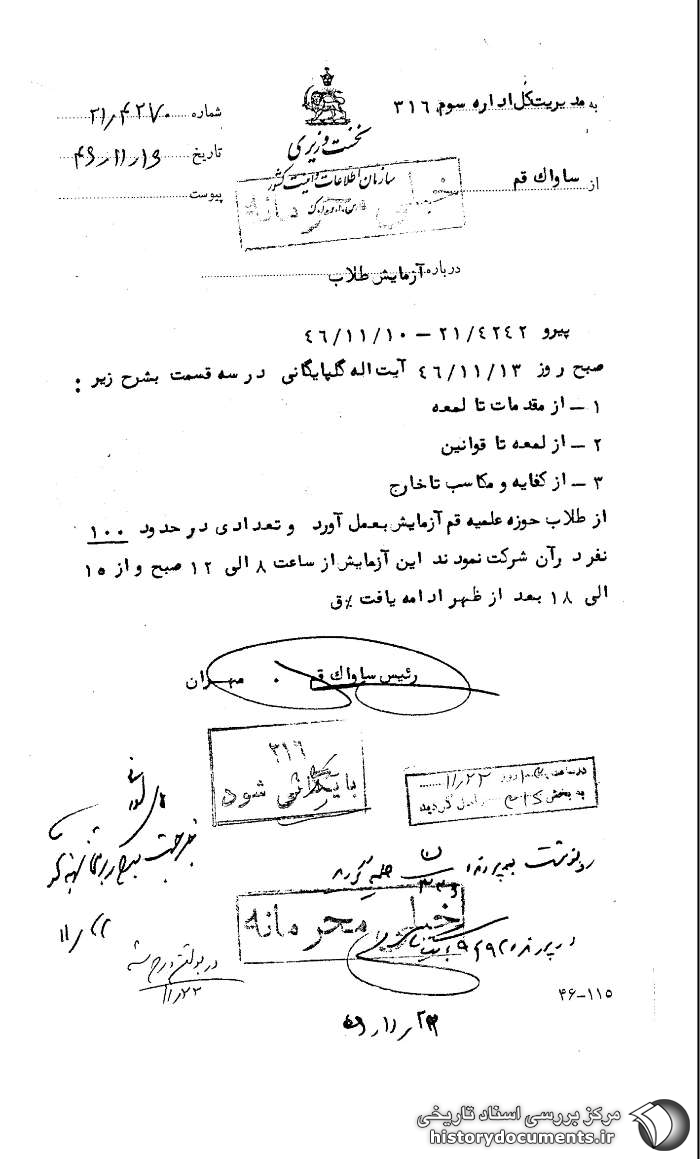 به مدیریت کل اداره سوم ۳۱۶
از ساواك قم
نخست وزیری
سازمان اطلاعات و امنیت کشور
س.ا.و.ا.ک
خیلی محرمانه
شماره ۲۱٫۴۲۷۰
تاریخ ۴۶٫۱۱٫۱۶
پیوست
درباره آزمایش طلاب
پیرو ۲۱/٤۲٤۲ – ٤٦/۱۱/۱۰
صبح روز ٤٦/۱۱/۱۳ آیت اله گلپایگانی در سه قسمت بشرح زیر :
۱ – از مقدمات تا لمعه
۲ – از لمعه تا قوانین
۳ – از کفایه و مکاسب تا خارج
از طلاب حوزه علمیه قم آزمایش بعمل آورد و تعدادی در حدود ۱۰۰
نفر در آن شرکت نمودند این آزمایش از ساعت ۸ الی ۱۲ صبح و از ۱۵
الی ۱۸ بعد از ظهر ادامه یافت ٪ق
رئیس ساواك قم . مهران
۳۱۶
بایگانی شود
در ساعت روز ۱۱٫۲۲
به بخش ۳۱۶ گردید
رونوشت بپرونده
خیلی محرمانه
در پرونده
در بولتن درج شد
۱۱٫۲۲
۴۶-۱۱۵
مرکز بررسی اسناد تاریخی
historydocuments.ir